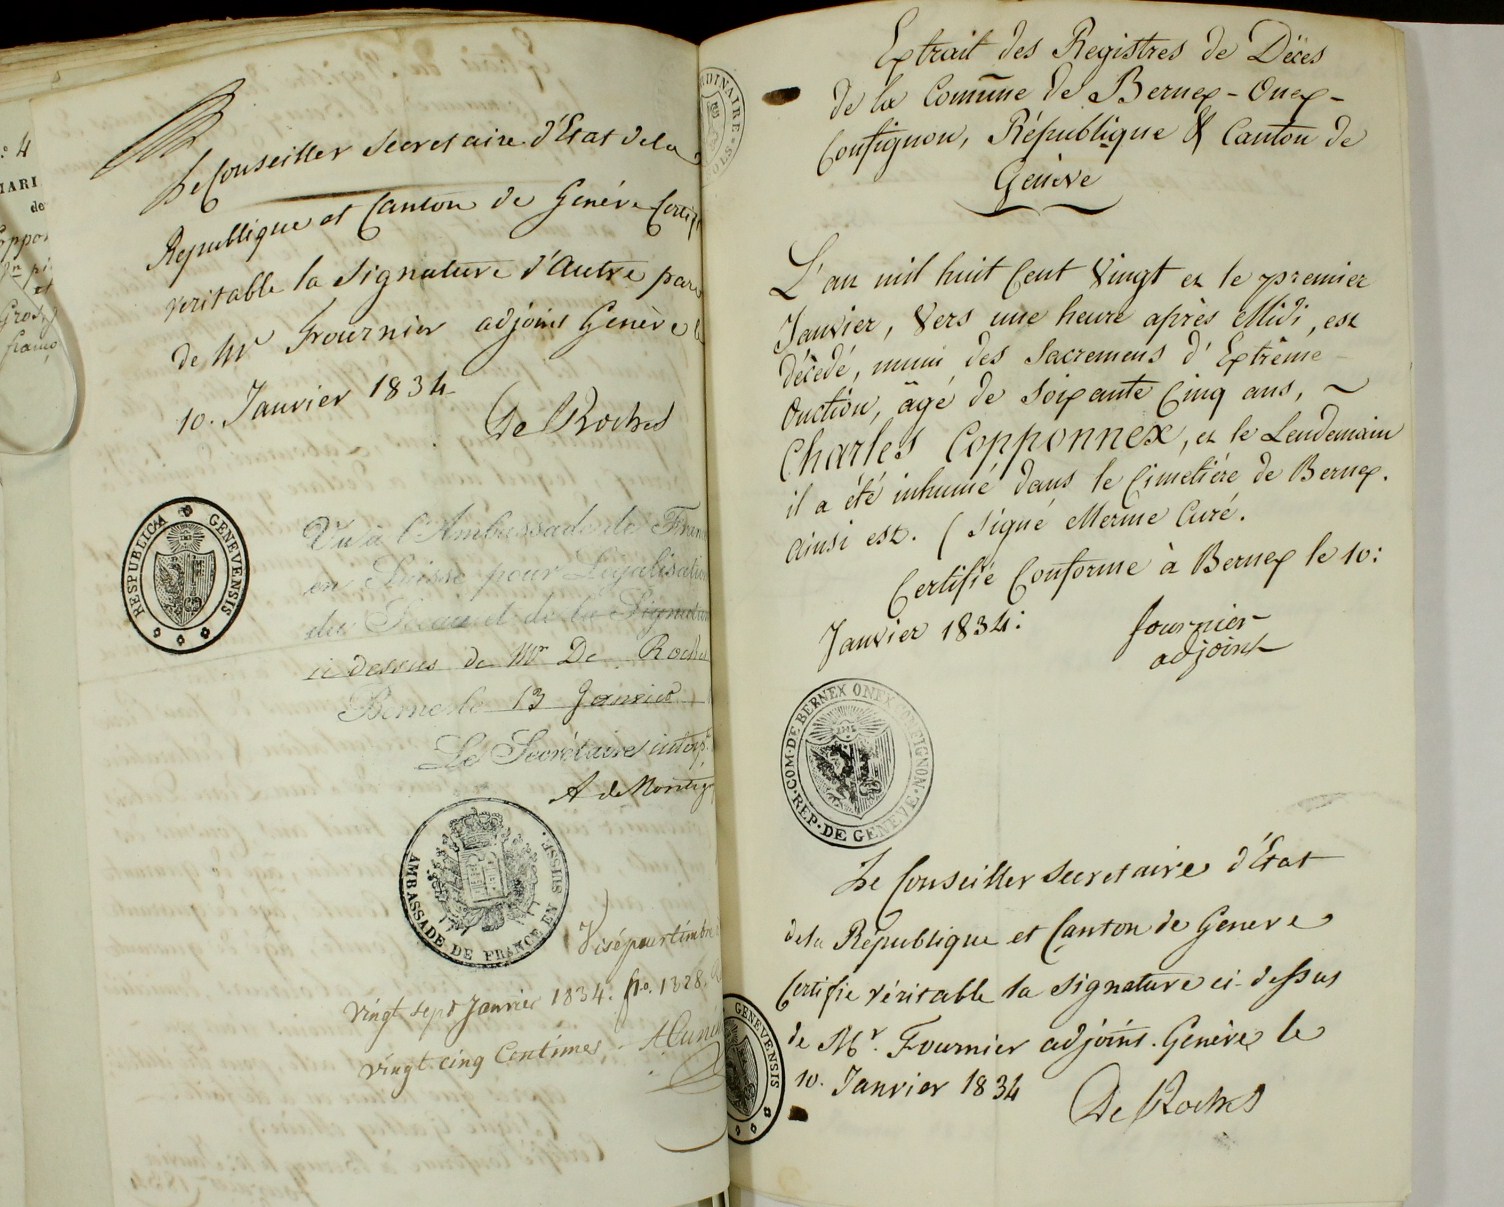 N.º 4
MARI
de
Le Conseiller Secretaire d'État de la
Republique et Canton de Genève Certifi
veritable la signature d'autre part
de Mr Fournier adjoint Genève le
10. Janvier 1834
De Roches
RESPUBLICA GENEVENSIS
Vu à l'Ambassade de France
en Suisse pour Légalisation
du Sceau et de la Signature
ci dessus de Mr De Roches
Berne le 13 Janvier
Le Secrétaire interp.
A de Montig
AMBASSADE DE FRANCE EN SUISSE.
Visé pour timbre
vingt sept Janvier 1834. fº. 1328.
vingt cinq Centimes,
Extrait des Registres de Décès
de la Commune de Bernex-Onex-
Confignon, République & Canton de
Genève
L'an mil huit Cent Vingt et le premier
Janvier, Vers une heure après Midi, est
décédé, muni des Sacremens d'Extrême-
Onction, âgé de Soixante Cinq ans,
Charles Copponnex, et le Lendemain
il a été inhumé dans le Cimetière de Bernex.
Ainsi est. (Signé Merme Curé.
Certifié Conforme à Bernex le 10:
Janvier 1834: fournier
adjoint
COM. DE BERNEX ONEX CONFIGNON. REP. DE GENEVE.
Le Conseiller Secretaire d'État
de la République et Canton de Geneve
Certifie véritable la signature ci-dessus
de Mr. Fournier adjoint. Genève le
10. Janvier 1834
De Roches
GENEVENSIS